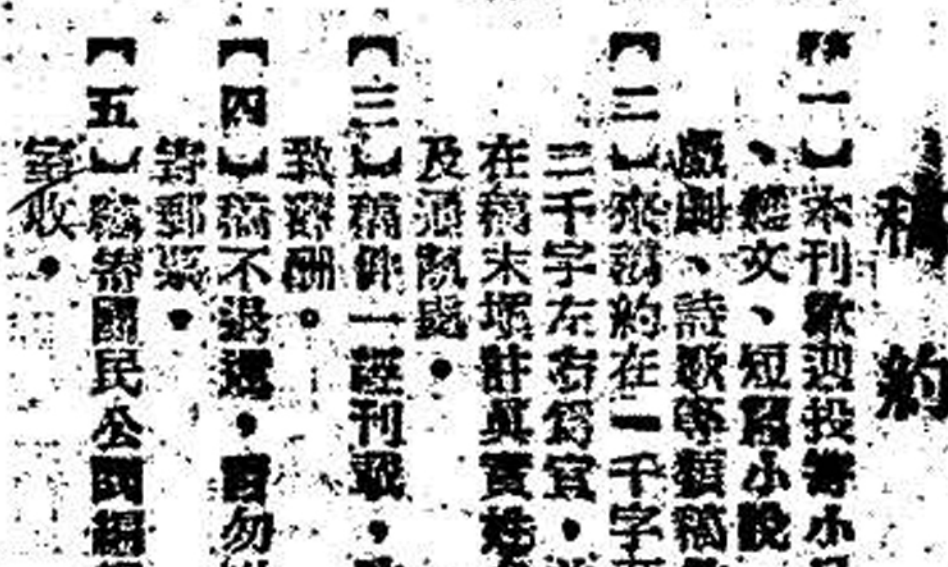 稿約
【一】本刊歡迎投寄小
、雜文、短篇小說
戲劇、詩歌等類稿
【二】來稿約在一千字
二千字左右為宜，
在稿末塡註眞實姓
及通訊處。
【三】稿件一經刊載，
致薄酬。
【四】稿不退還，請勿
寄郵票。
【五】稿寄國民公報編
室收。